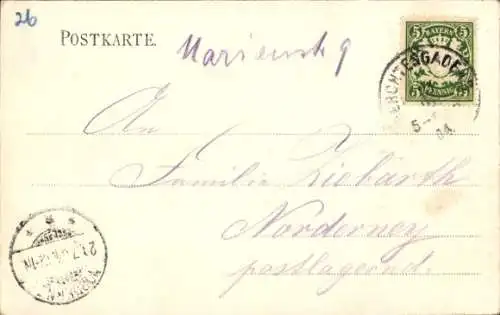 26
POSTKARTE.
Marienstr 9
5 BAYERN 5
5 PFENNIG 5
BERCHTESGADEN
5
04
An
Familie Ziebarth
Norderney
postlagernd.
21.7